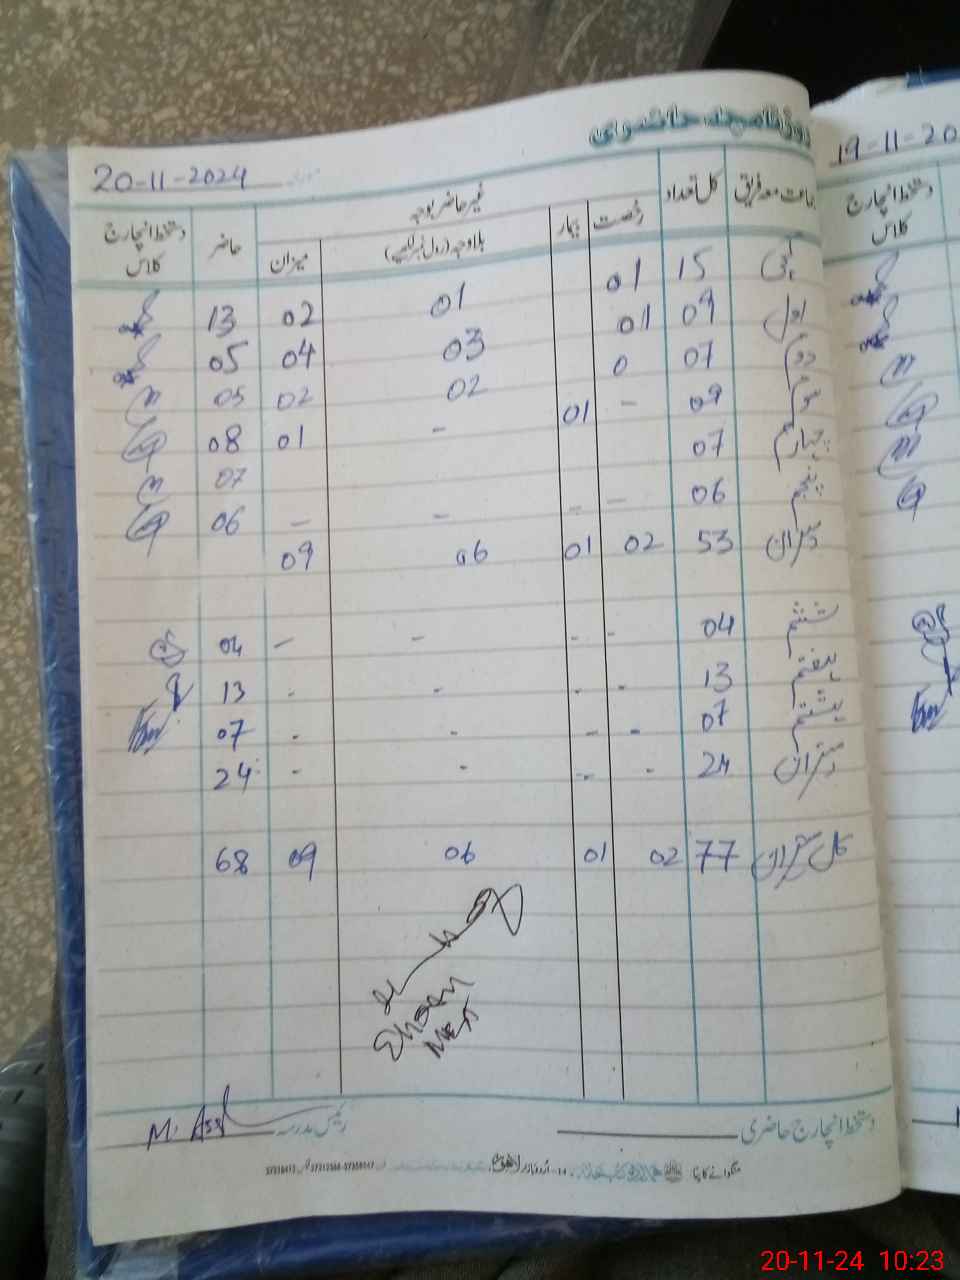 روزنامچہ حاضری
20-11-2024
19-11-20
جماعت معہ فریق کل تعداد غیر حاضر بوجہ حاضر دستخط انچارج کلاس
رخصت بیمار بلاوجہ (رول نمبر لکھیے) میزان
دستخط انچارج
کلاس
15 01 01 02 13
اول 09 01 03 04 05
دوم 07 0 02 02 05
سوم 09 - 01 - 01 08
چہارم 07 07
پنجم 06 - - - - 06
میزان 53 02 01 06 09
ششم 04 - - - - 04
ہفتم 13 - - - - 13
ہشتم 07 - - - - 07
میزان 24 - - - - 24
کل میزان 77 02 01 06 09 68
Ehsan
MEA
دستخط انچارج حاضری
رئیس مدرسہ
20-11-24 10:23